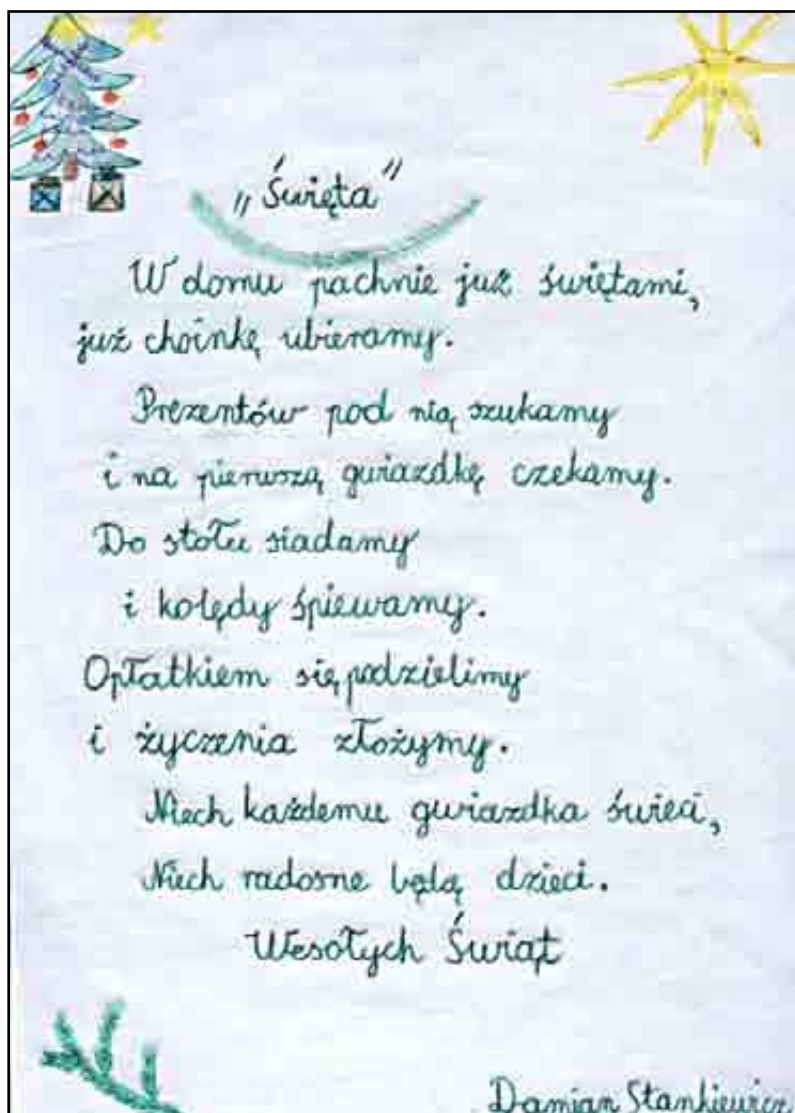 „Święta”
W domu pachnie już świętami,
już choinkę ubieramy.
Prezentów pod nią szukamy
i na pierwszą gwiazdkę czekamy.
Do stołu siadamy
i kolędy śpiewamy.
Opłatkiem się podzielimy
i życzenia złożymy.
Niech każdemu gwiazdka świeci,
Niech radosne będą dzieci.
Wesołych Świąt
Damian Stankiewicz